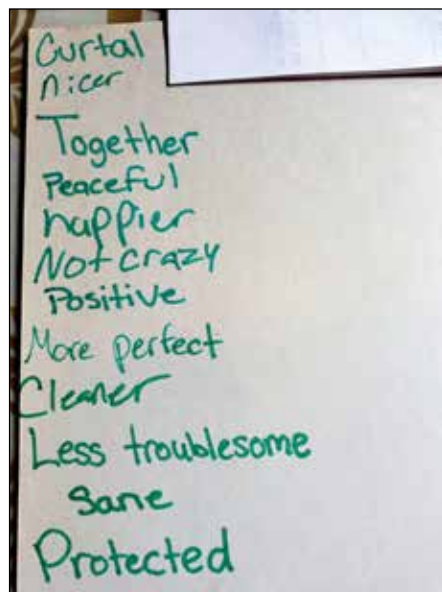 Curtal
nicer
Together
Peaceful
happier
Not crazy
Positive
More perfect
Cleaner
Less troublesome
Sane
Protected